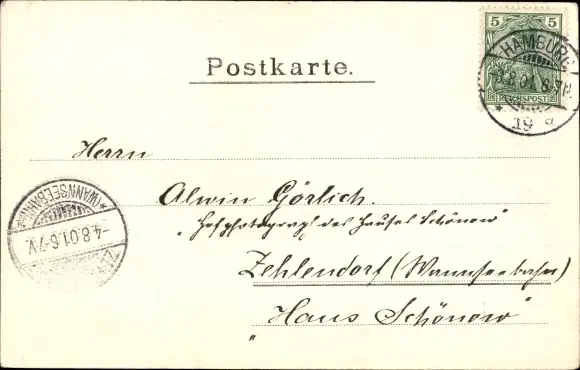 5 5
REICHSPOST
HAMBURG
-3.8.01.8-
* 19 e
Postkarte.
Herrn
Alwin Görlich.
"Hofphotograph des Hauses Schönow"
Zehlendorf (Wannseebahn)
"Haus Schönow"
*(WANNSEEBAHN)*
-4.8.01.6-7V.